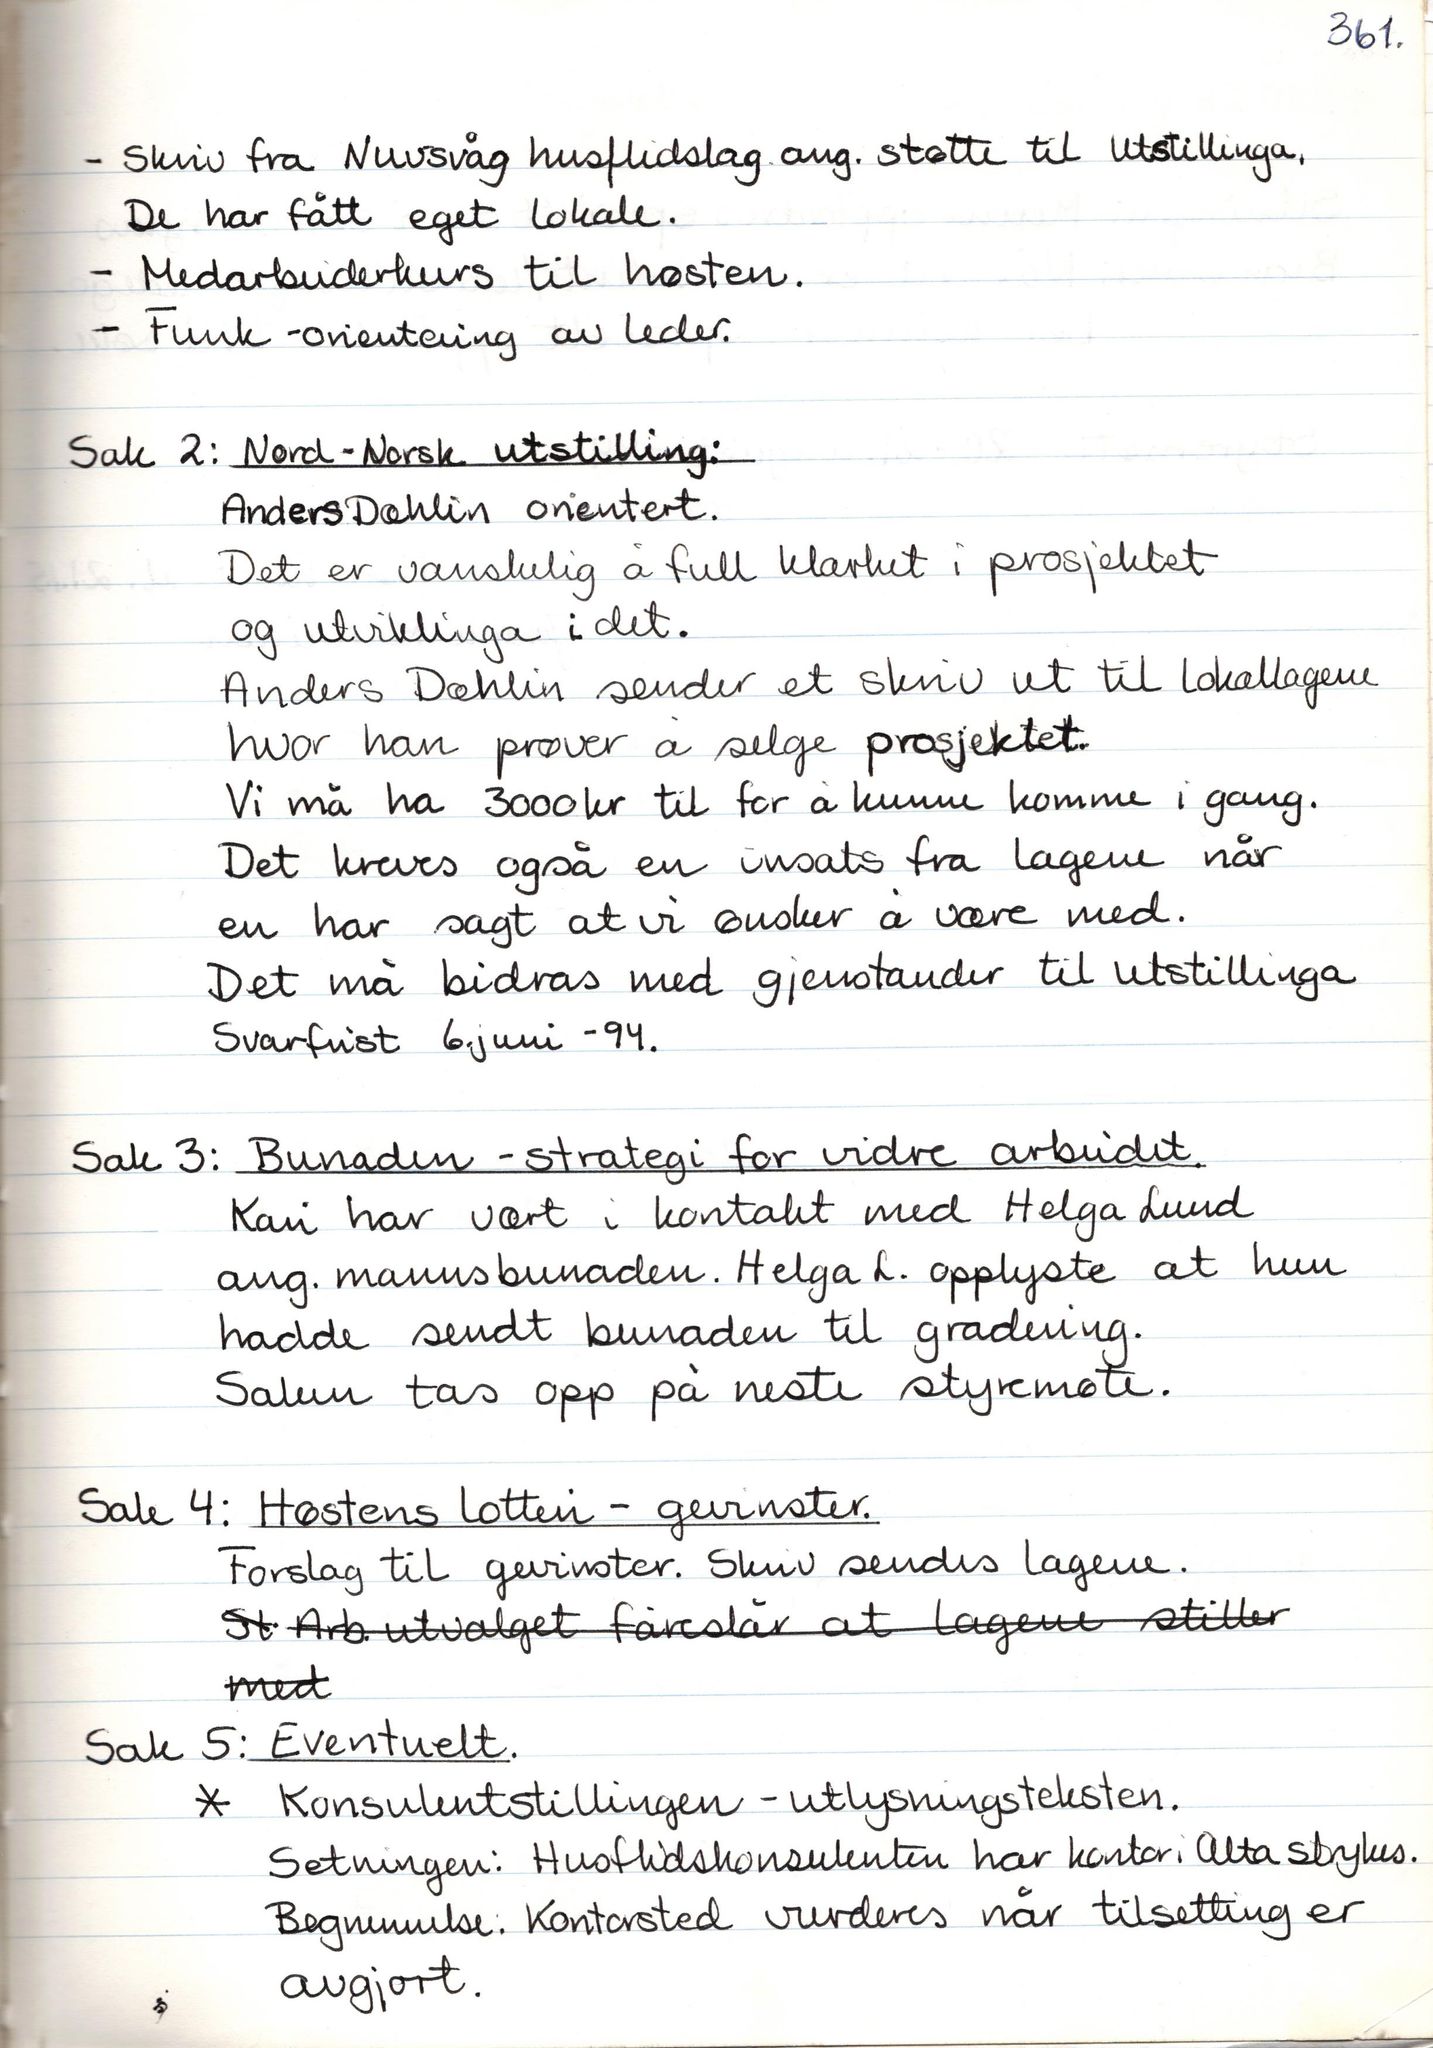 361.
- Skriv fra Nuvsvåg husflidslag ang. støtte til utstillinga.
De har fått eget lokale.
- Medarbeiderkurs til høsten.
- Funk - orientering av leder.
Sak 2: Nord-Norsk utstilling:
Anders Dæhlin orientert.
Det er vanskelig å full klarhet i prosjektet
og utviklinga i det.
Anders Dæhlin sender et skriv ut til lokallagene
hvor han prøver å selge prosjektet.
Vi må ha 3000 kr til for å kunne komme i gang.
Det kreves også en insats fra lagene når
en har sagt at vi ønsker å være med.
Det må bidras med gjenstander til utstillinga
Svarfrist 6. juni -94.
Sak 3: Bunaden - strategi for vidre arbeidet.
Kari har vært i kontakt med Helga Lund
ang. mannsbunaden. Helga L. opplyste at hun
hadde sendt bunaden til gradering.
Saken tas opp på neste styremøte.
Sak 4: Høstens lotteri - gevinster.
Forslag til gevinster. Skriv sendes lagene.
St. Arb. utvalget føreslår at lagene stiller
med
Sak 5: Eventuelt.
* Konsulentstillingen - utlysningsteksten.
Setningen: Husflidskonsulenten har kontor i Alta strykes.
Begrunnelse: Kontorsted vurderes når tilsetting er
avgjort.